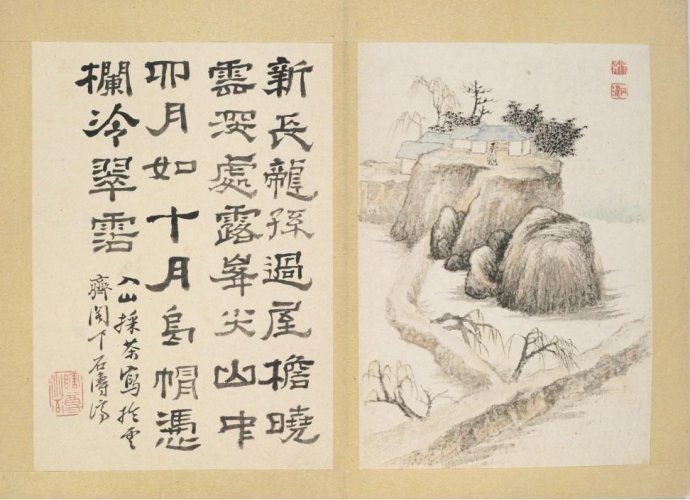 新長龍孫過屋檐曉
雲深處露峯尖山中
四月如十月烏帽憑
欄冷翠霑
入山採茶寫於雲
齊閣下石濤濟